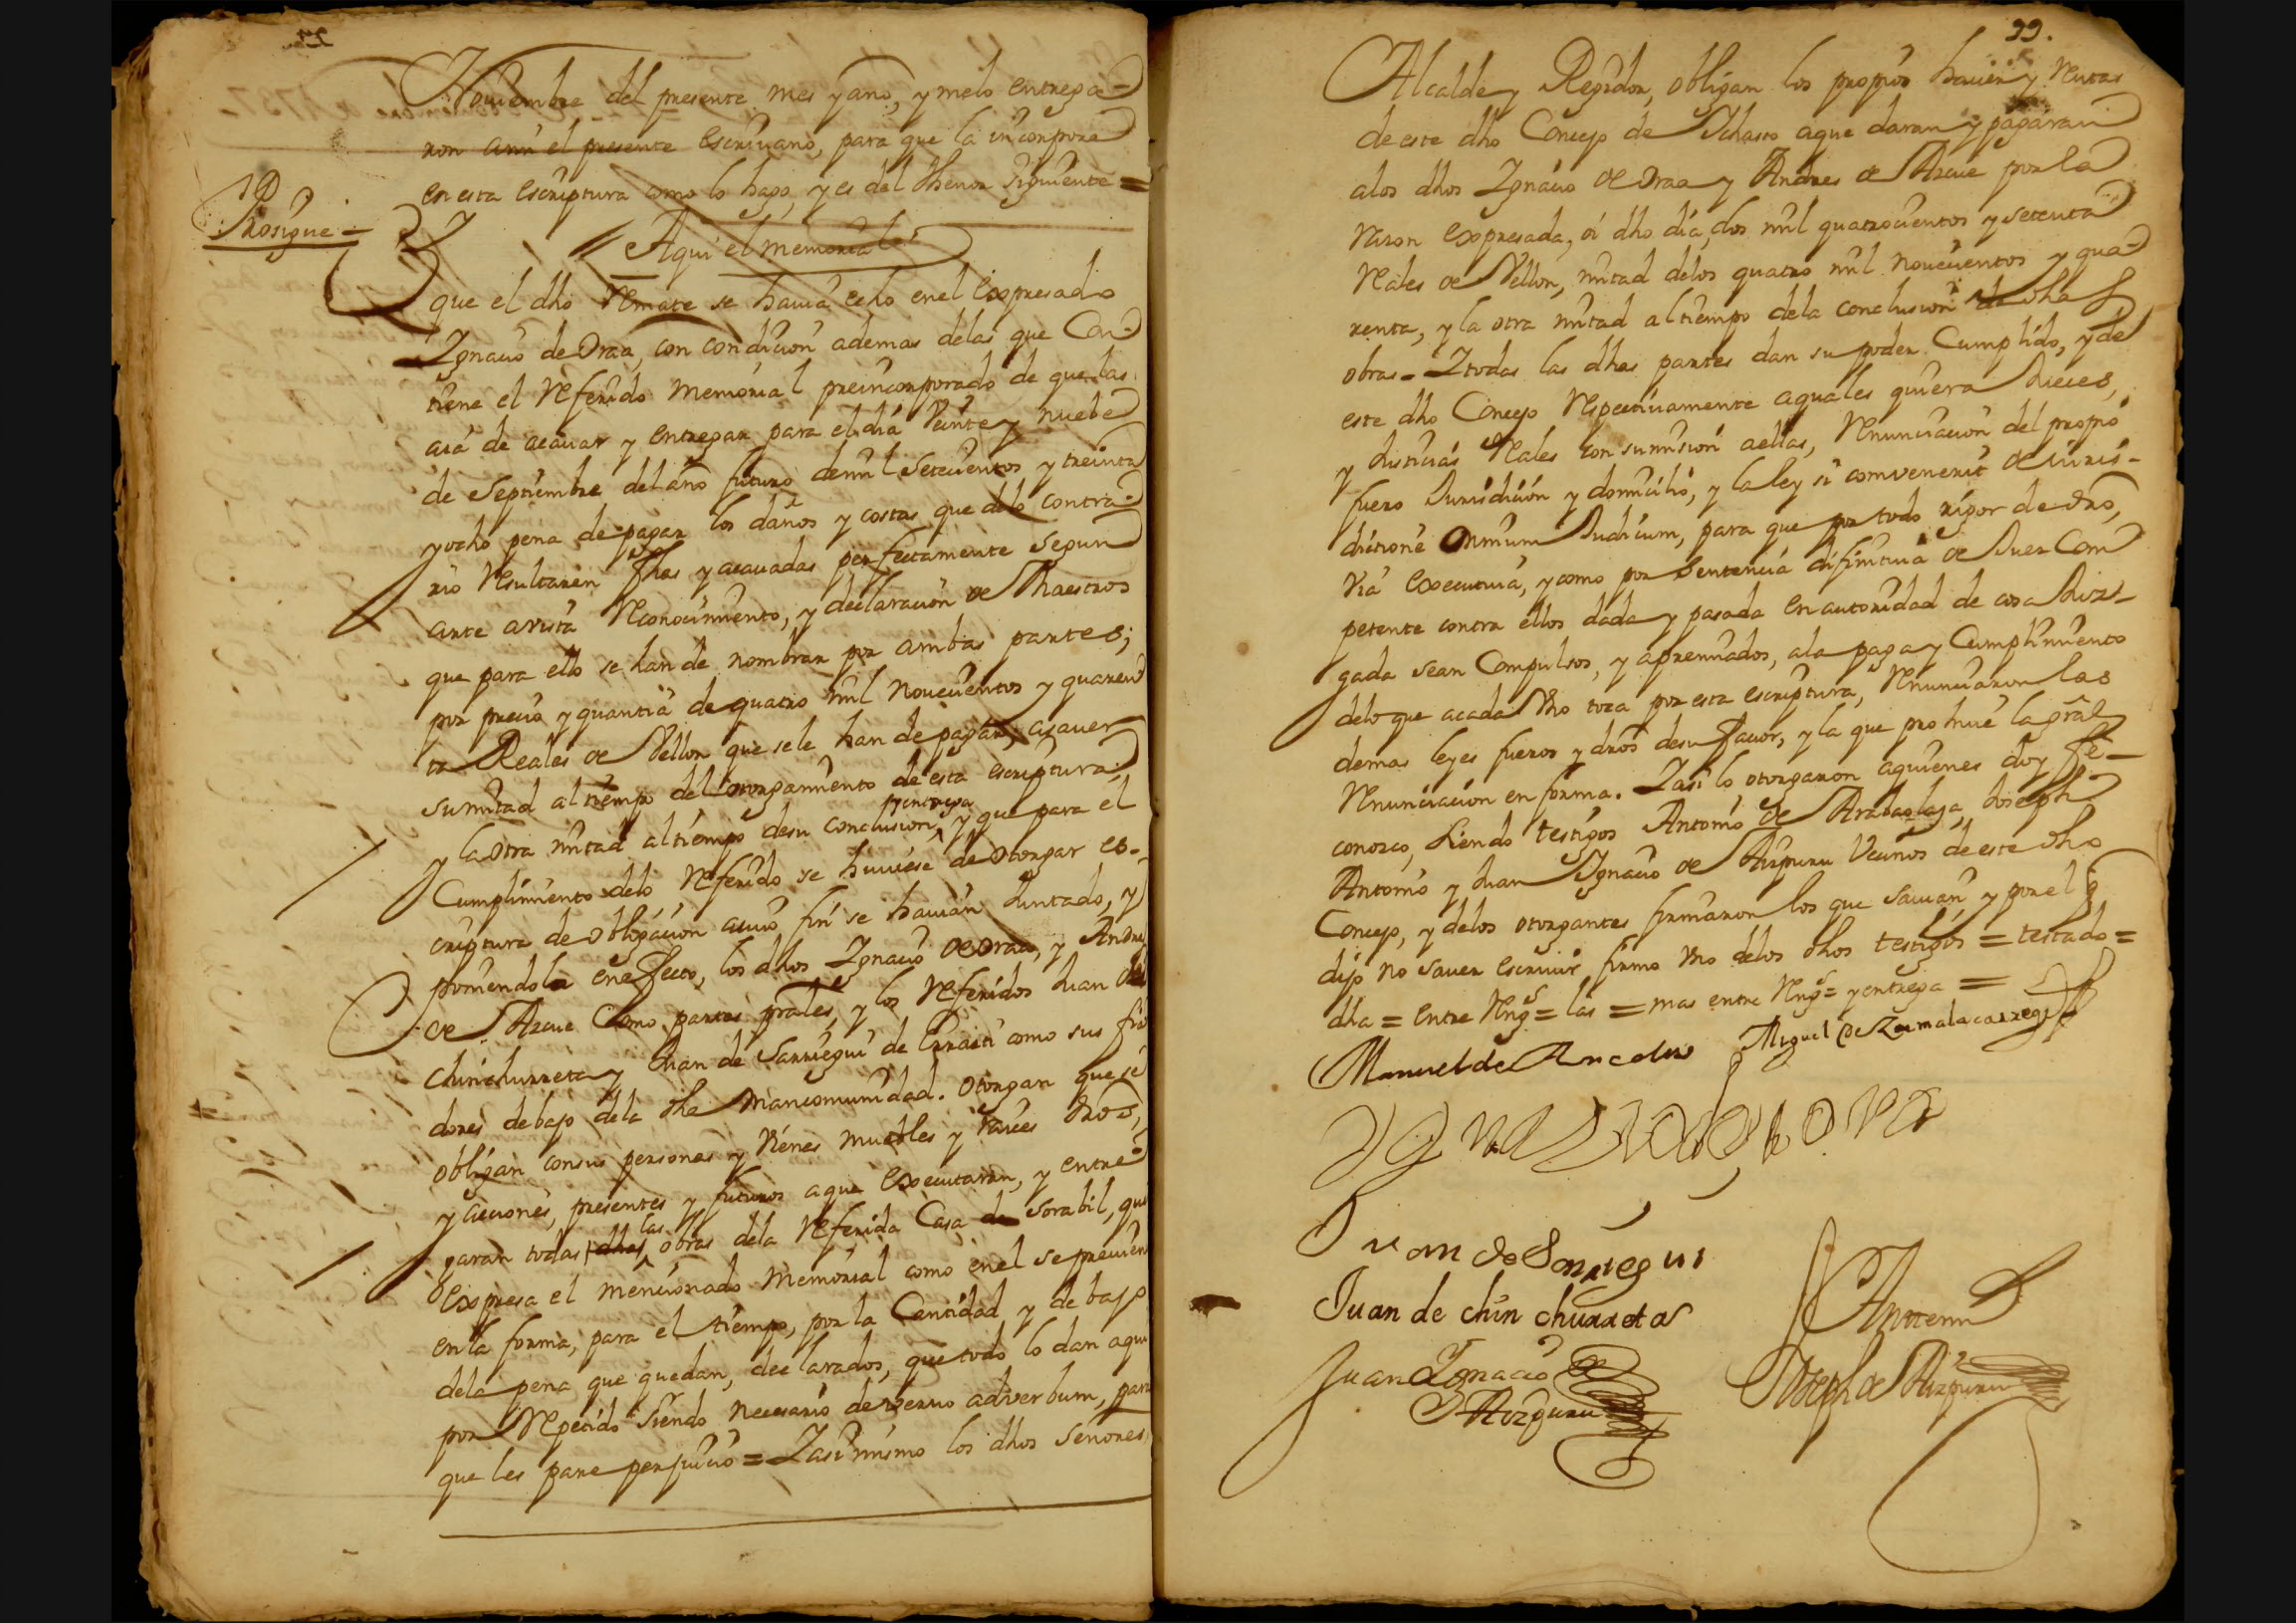 Noviembre del presente mes y año, y melo entrega-
ron ami el presente escrivano, para que la incorpore
en esta escriptura como lo hago, y es del thenor siguiente =
Aqui el memorial
Prosigue =
Y que el dho Remate se havia echo en el expresado
Ygnacio de Oraa, con condicion ademas delas que Con-
tiene el Referido memorial preincorporado de que las
aia de acavar y entregar para el dia Veinte y nuebe
de septiembre del año futuro de mil setecientos y treinta
y ocho pena de pagar los daños y costas que delo contra-
rio Resultaren fhas y acavadas perfectamente segun
ante avista Reconocimiento, y declaracion de Maestros
que para ello se han de nombrar por ambas partes;
por precio y quantia de quatro mil novecientos y quaren
ta Reales de Vellon que sele han de pagar, asaver
su mitad al tiempo del otorgamiento de esta escriptura,
y la otra mitad al tiempo desu conclusion, y entrega y que para el
Cumplimiento delo Referido se huviese de otorgar es-
criptura de obligacion acuio fin se havian Juntado, y
poniendola en efecto, los dhos Ygnacio de Oraa, y Andres
de Azcue Como partes prales, y los Referidos Juan de
Chinchurreta y Juan de Sarriegui de Erraiti como sus fia
dores debajo dela dha mancomunidad. otorgan que se
obligan consus personas y Vienes muebles y raices dros,
y acciones, presentes y futuros a que executaran, y entre-
garan todas dhas las obras dela Referida Casa de Sorabil, que
expresa el mencionado memorial como enel se previen
en la forma, para el tiempo, por la Cantidad y debajo
dela pena que quedan, declarados, que todo lo dan aqui
por Repetido siendo necesario de vervo adverbum, para
que les pare perjuicio = Y asi mismo los dhos señores
99.
Alcalde y Regidor, obligan los propios haver y Rentas
de este dho Concejo de Ichaso aque daran y pagaran
alos dhos Ygnacio de Oraa y Andres de Azcue por la
Razon expresada, oi dho dia, dos mil quatrocientos y setenta
Reales de Vellon, mitad delos quatro mil novecientos y qua-
renta, y la otra mitad al tiempo dela conclusion de dhas
obras = Y todas las dhas partes dan su poder Cumplido, y de
este dho Concejo Respectivamente aquales quiera Jueces,
y Justicias Reales con sumision aellas, Renunciacion del propio
fuero Jurisdicion y domicilio, y la ley si comvenerit de iuris-
dictione Omnium Judicum, para que por todo rigor de dro,
Via executiva, y como por sentencia difinitiva de Juez Com
petente contra ellos dada y pasada en autoridad de cosa Juz-
gada sean Compulsos, y apremiados, ala paga y Cumplimiento
delo que acada Uno toca por esta escriptura, Renunciaron las
demas leyes fueros y dros desu favor, y la que prohive la gral
Renunciacion en forma. Y asi lo otorgaron aquienes doy fe-
conozco, siendo testigos Antonio de Arabaolaza, Joseph
Antonio y Juan Ygnacio de Aizpuru Vecinos de este dho
Concejo, y delos otorgantes firmaron los que savian y por el q
dijo no saver escrivir firmo Uno delos dhos testigos = testado =
dha = entre Rengs = las = mas entre Rengs = y entrega =
Manuel de Ancelus
Miguel de Zumalacarregi
Juan de Sarriegui
Juan de chin churreta
Juan Ygnacio de
Aizpuru
Antemi
Joseph de Aizpuru